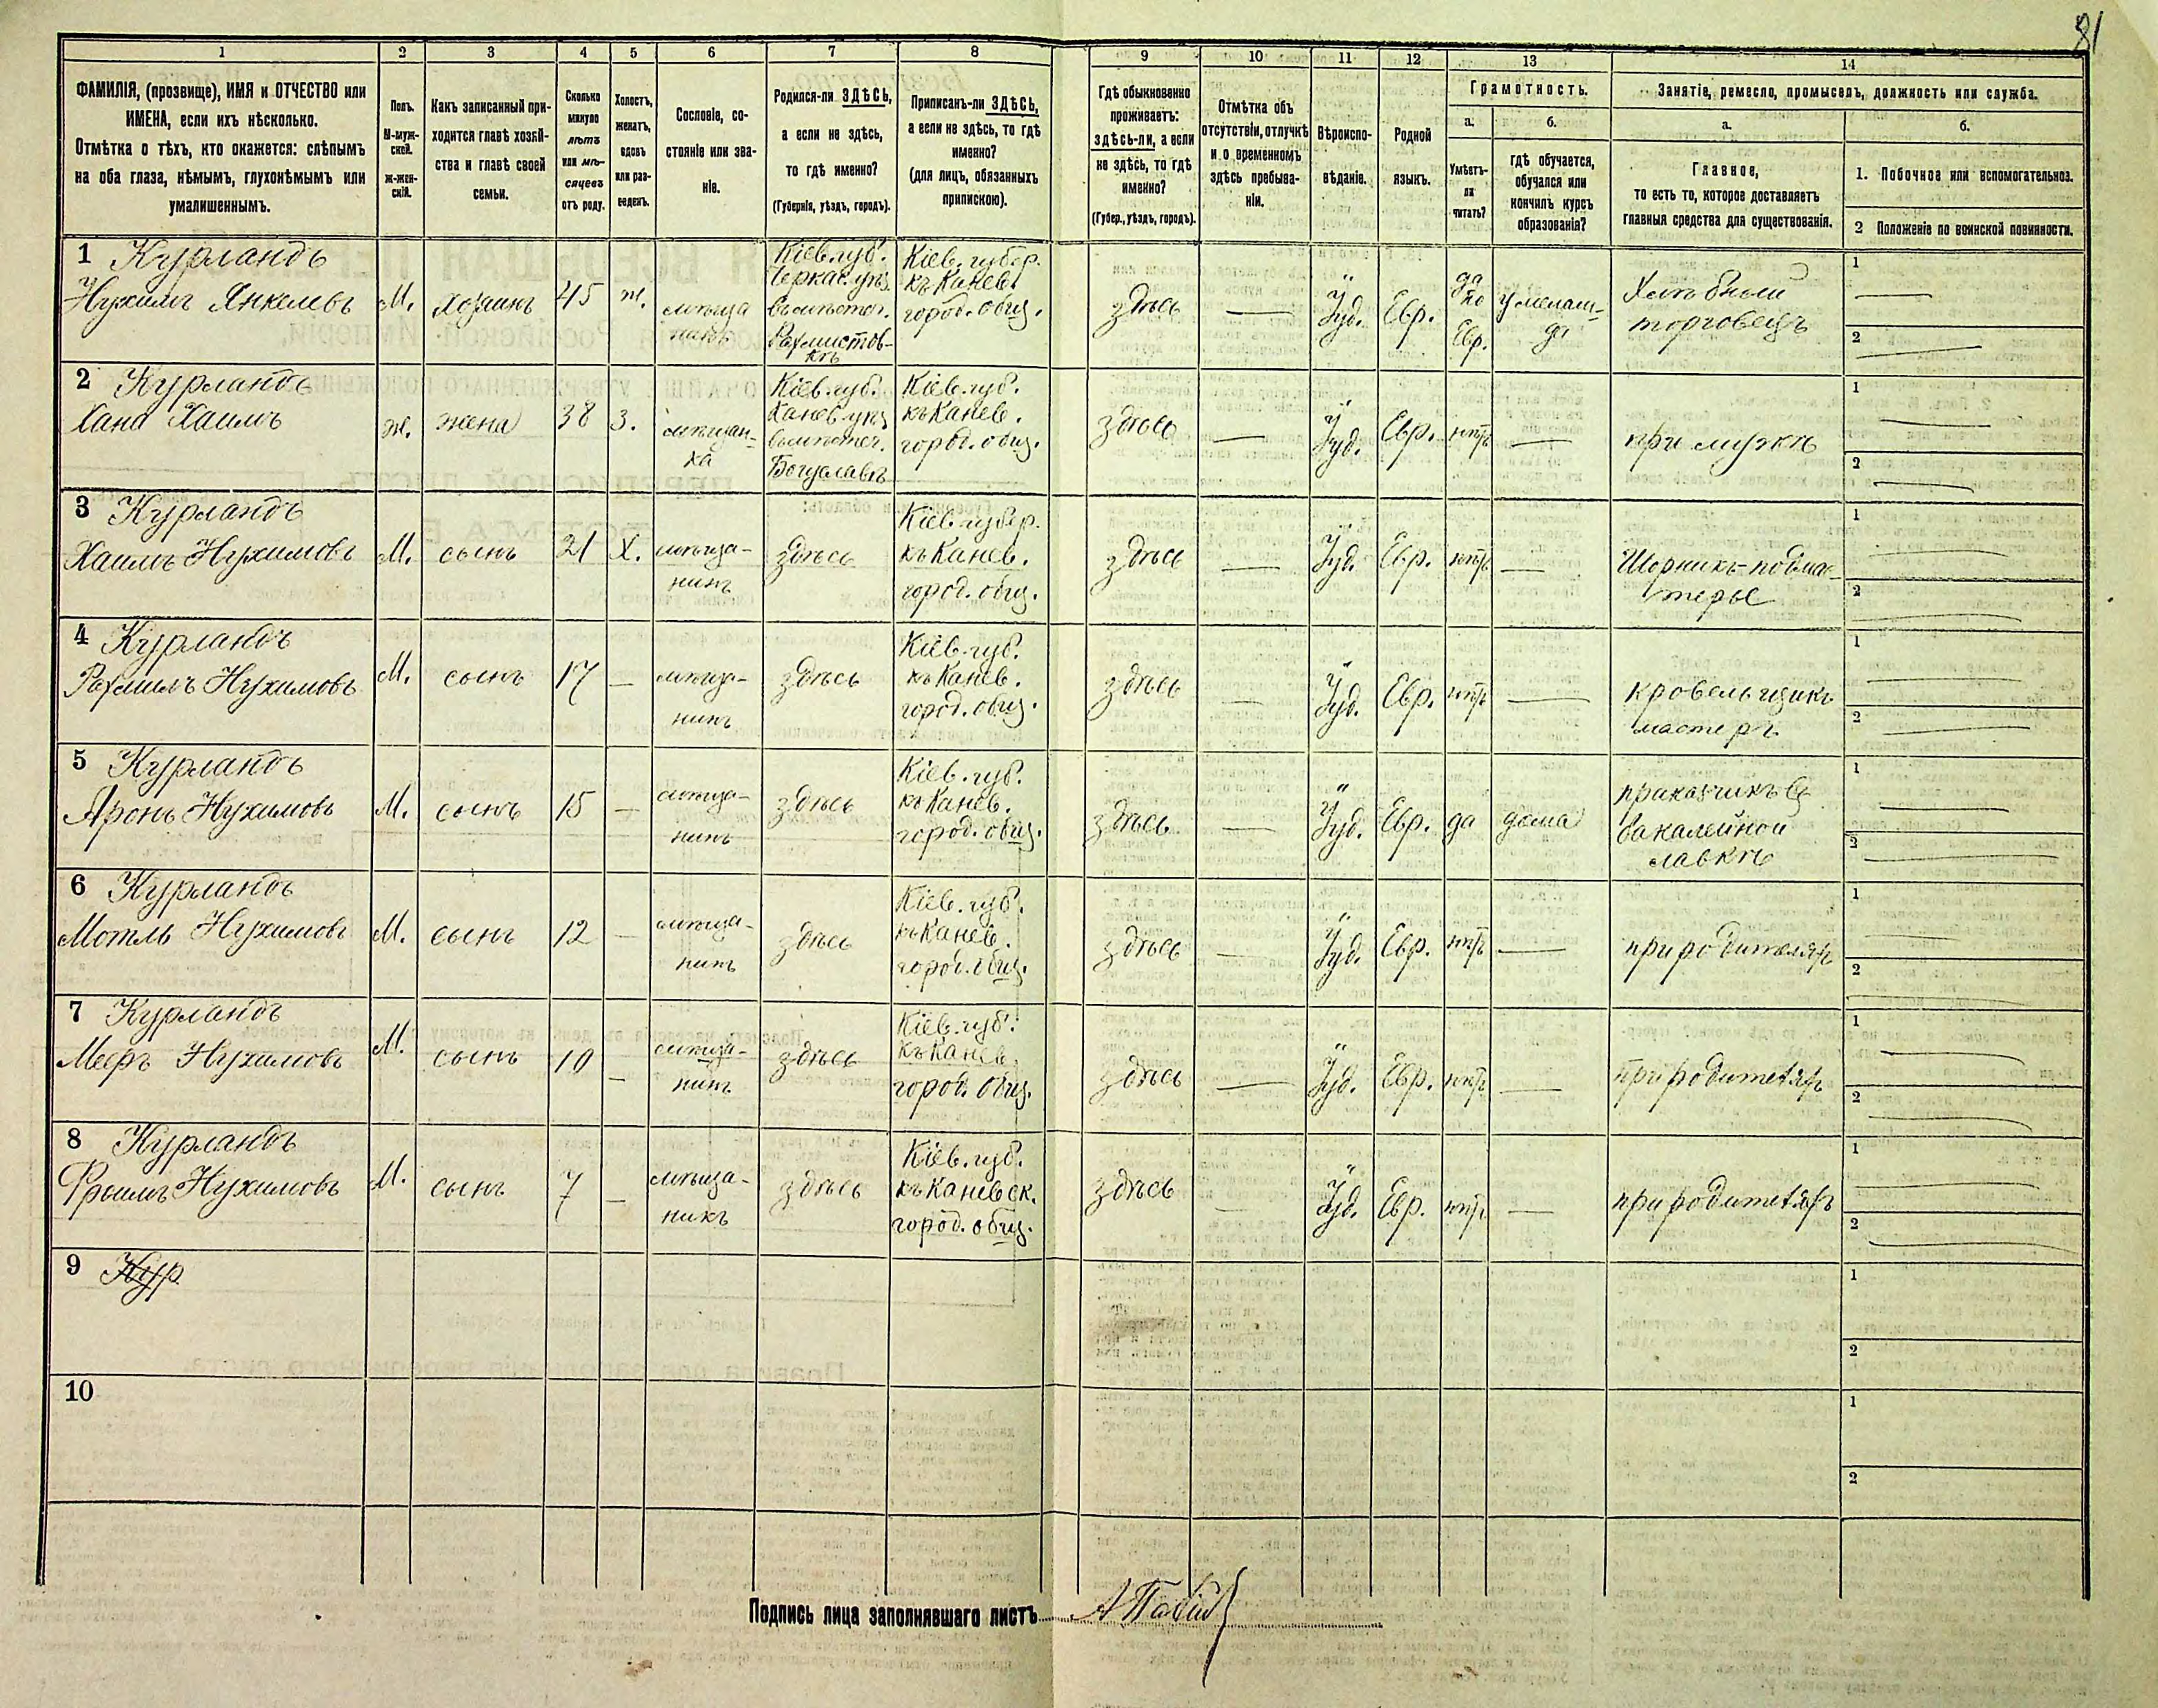 81
1 2 3 4 5 6 7 8 9 10 11 12 13 14
ФАМИЛІЯ, (прозвище), ИМЯ и ОТЧЕСТВО или
ИМЕНА, если ихъ нѣсколько.
Отмѣтка о тѣхъ, кто окажется: слѣпымъ
на оба глаза, нѣмымъ, глухонѣмымъ или
умалишеннымъ.
Полъ.
М-муж-
ской.
Ж-жен-
скій.
Какъ записанный при-
ходится главѣ хозяй-
ства и главѣ своей
семьи.
Сколько
минуло
лѣтъ
или мѣ-
сяцевъ
отъ роду.
Холостъ,
женатъ,
вдовъ
или раз-
веденъ.
Сословіе, со-
стояніе или зва-
ніе.
Родился-ли ЗДѢСЬ,
а если не здѣсь,
то гдѣ именно?
(Губернія, уѣздъ, городъ).
Приписанъ-ли ЗДѢСЬ,
а если не здѣсь, то гдѣ
именно?
(для лицъ, обязанныхъ
припискою).
Гдѣ обыкновенно
проживаетъ:
здѣсь-ли, а если
не здѣсь, то гдѣ
именно?
(Губер., уѣздъ, городъ).
Отмѣтка объ
отсутствіи, отлучкѣ
и о временномъ
здѣсь пребыва-
ніи.
Вѣроиспо-
вѣданіе.
Родной
языкъ.
Грамотность.
а.
Умѣетъ-
ли
читать?
б.
гдѣ обучается,
обучался или
кончилъ курсъ
образованія?
Занятіе, ремесло, промыселъ, должность или служба.
а.
Главное,
то есть то, которое доставляетъ
главныя средства для существованія.
б.
1. Побочное или вспомогательное.
2 Положеніе по воинской повинности.
1 Курландъ
Нухимъ Янкелевъ
М.
хозяинъ
45
ж.
мѣща
нинъ
Кіев. губ.
Черкас. уѣз.
въ мѣстеч.
Кіев. губер.
къ Канев.
город. общ.
здѣсь
Іуд.
Евр.
да
по
Евр.
у мелам-
да
Хлѣбный
торговецъ
1
2
2 Курландъ
Хана Хаимъ
ж.
жена
38
з.
мѣщан-
ка
Кіев. губ.
Канев. уѣз
въ мѣстеч.
Богуславѣ
Кіев. губ.
къ Канев.
город. общ.
здѣсь
Іуд.
Евр.
нѣтъ
при мужѣ
1
2
3 Курландъ
Хаимъ Нухимовъ
М.
сынъ
21
Х.
мѣща-
нинъ
здѣсь
Кіев. губер.
къ Канев.
город. общ.
здѣсь
Іуд.
Евр.
нѣтъ
Шорникъ-подма-
терье
1
2
4 Курландъ
Рахмилъ Нухимовъ
М.
сынъ
17
мѣща-
нинъ
здѣсь
Кіев. губ.
къ Канев.
город. общ.
здѣсь
Іуд.
Евр.
нѣтъ
кровельщикъ
мастеръ
1
2
5 Курландъ
Аронъ Нухимовъ
М.
сынъ
15
мѣща-
нинъ
здѣсь
Кіев. губ.
къ Канев.
город. общ.
здѣсь
Іуд.
Евр.
да
дома
приказчикъ въ
бакалейной
лавкѣ
1
2
6 Курландъ
Мотль Нухимовъ
М.
сынъ
12
мѣща-
нинъ
здѣсь
Кіев. губ.
къ Канев.
город. общ.
здѣсь
Іуд.
Евр.
нѣтъ
при родителяхъ
1
2
7 Курландъ
Мееръ Нухимовъ
М.
сынъ
10
мѣща-
нинъ
здѣсь
Кіев. губ.
къ Канев.
город. общ.
здѣсь
Іуд.
Евр.
нѣтъ
при родителяхъ
1
2
8 Курландъ
Фроимъ Нухимовъ
М.
сынъ
7
мѣща-
нинъ
здѣсь
Кіев. губ.
къ Каневск.
город. общ.
здѣсь
Іуд.
Евр.
нѣтъ
при родителяхъ
1
2
9 Кур
1
2
10
1
2
Подпись лица заполнявшаго листъ